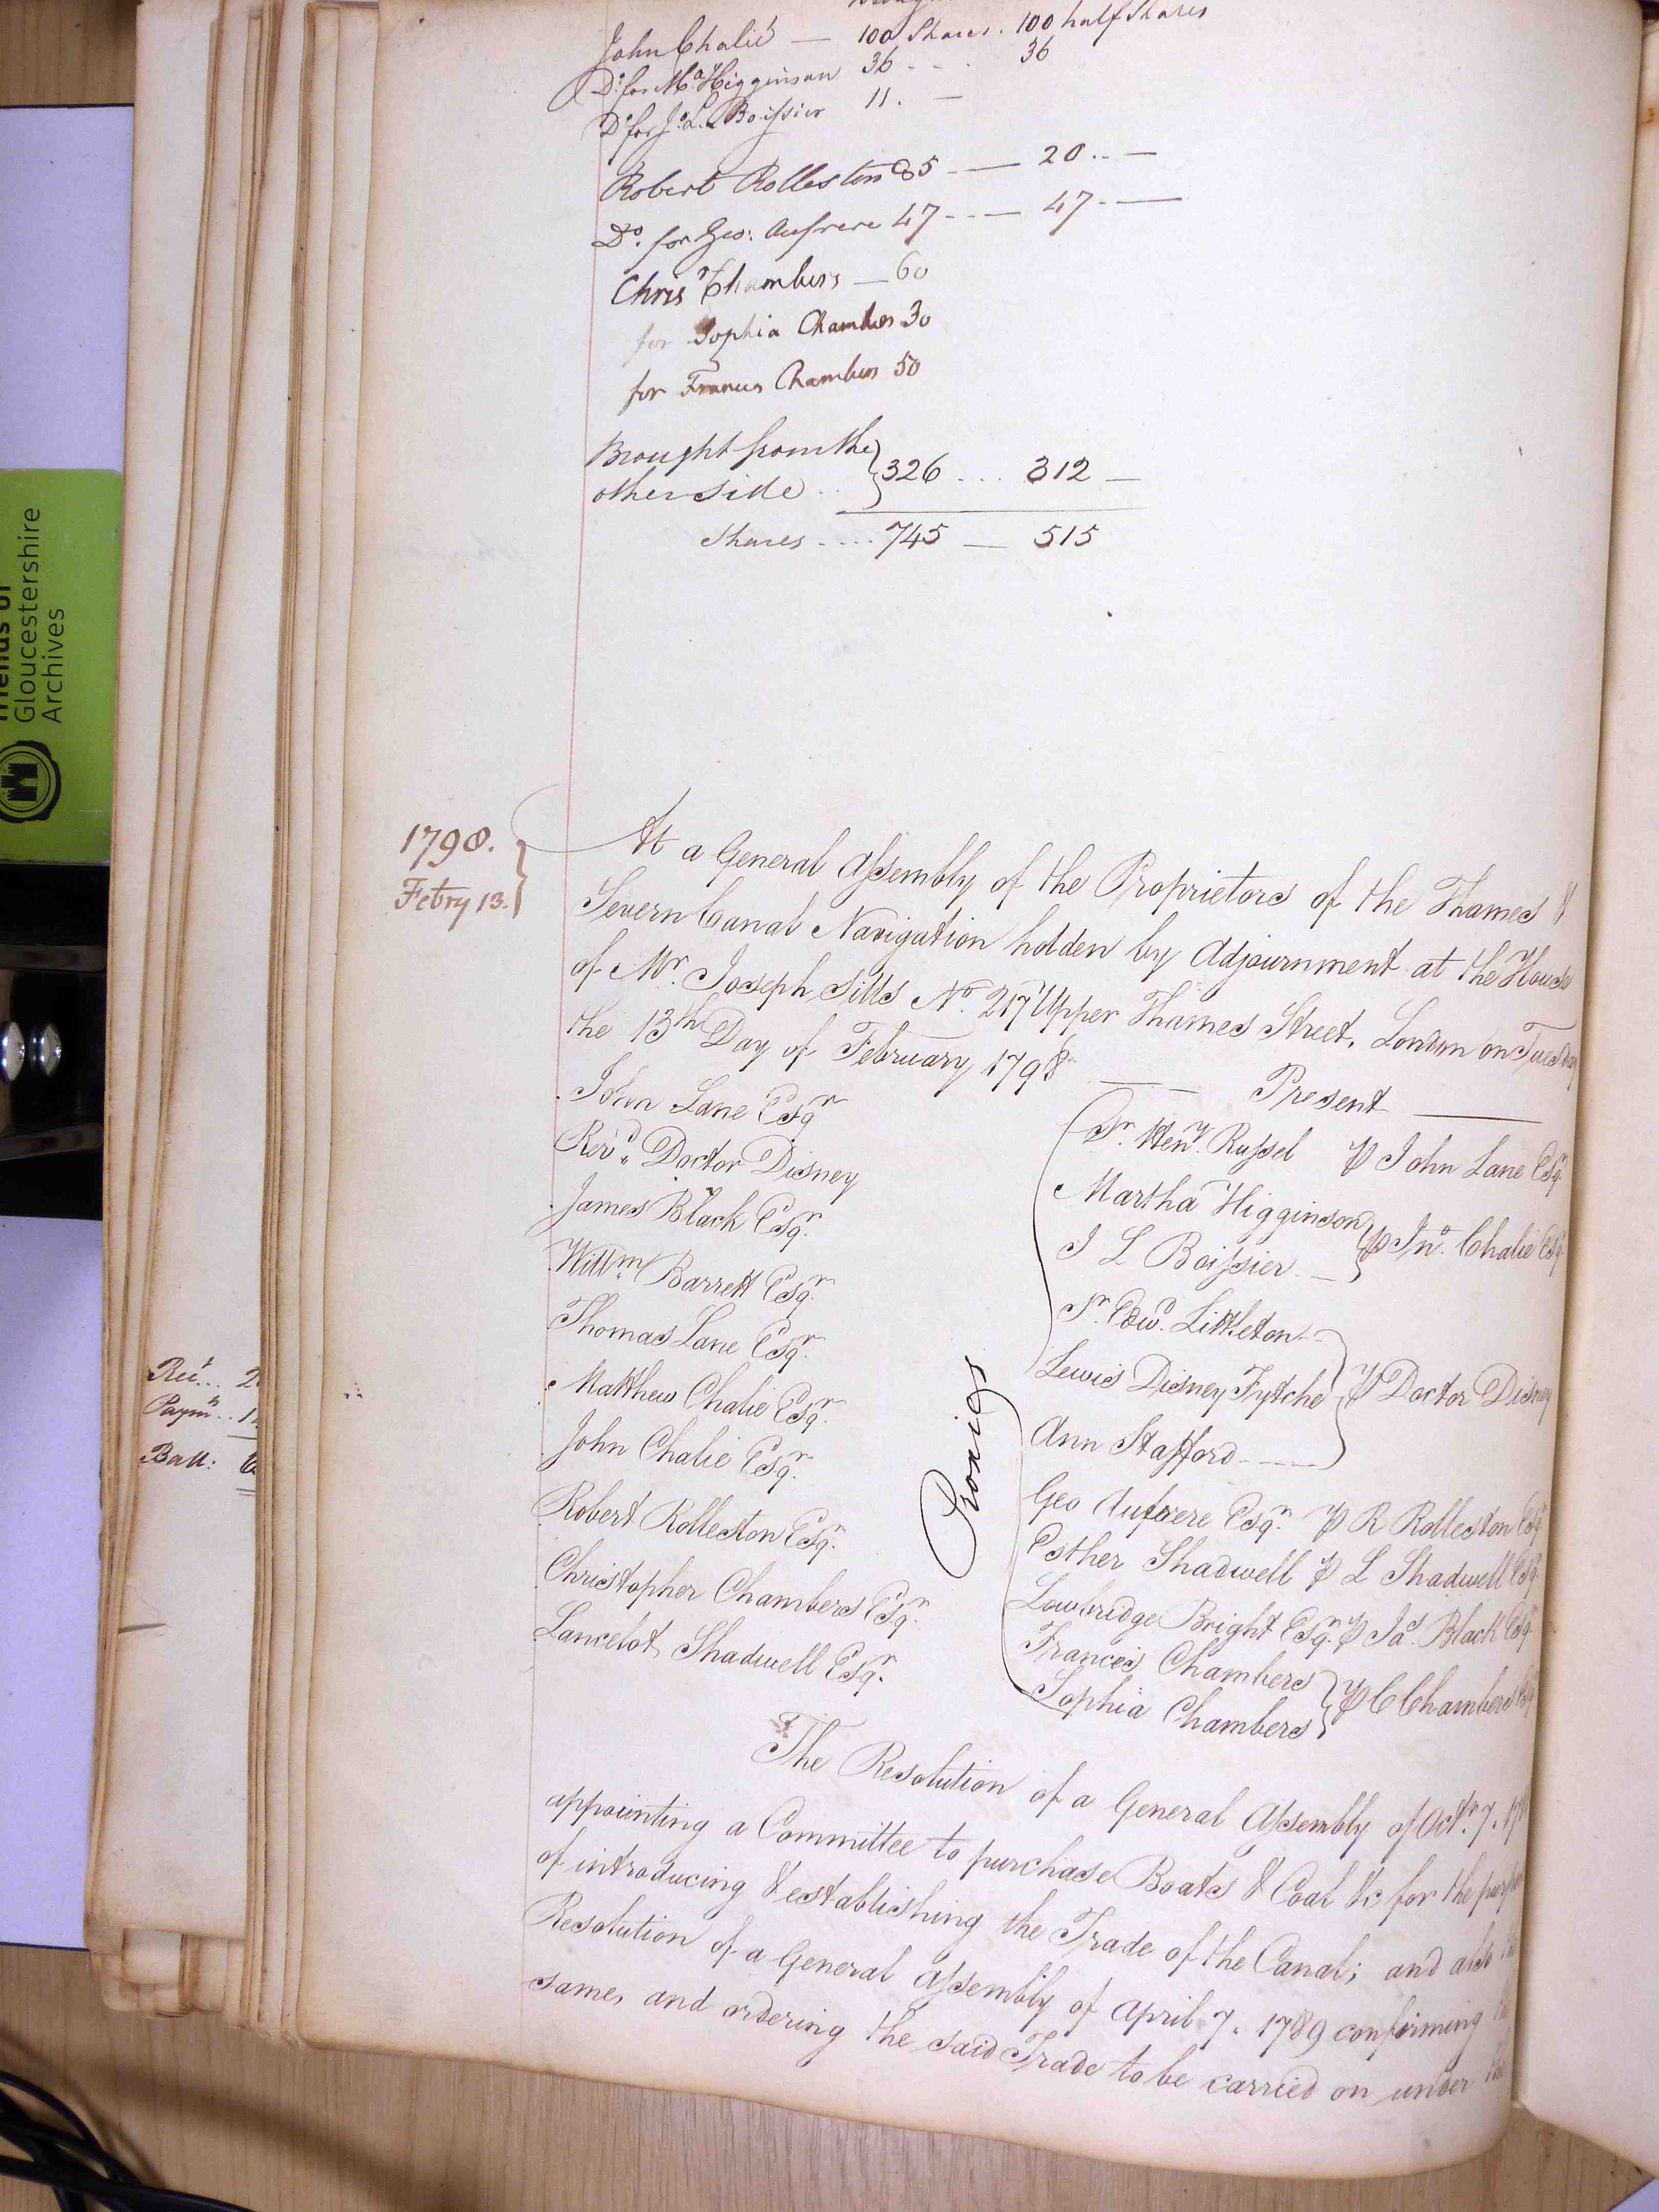 John Chalié — 100 Shares . 100 half Shares
Do. for Ma. Higginson 36 - - . 36
Do. for J. L. Boissier 11 . —
Robert Rolleston 85 - — 20 .. —
Do. for Geo: Aufrere 47 - - - — 47 - —
Chrisr Chambers — 60
for Sophia Chambers 30
for Frances Chambers 50
Brought from the
other side . . } 326 . . . 312 —
Shares . . . . 745 — 515
1798.
Febry 13. }
At a General Assembly of the Proprietors of the Thames &
Severn Canal Navigation holden by Adjournment at the House
of Mr. Joseph Sills No. 217 Upper Thames Street, London on Tuesday
the 13th Day of February 1798
Present
John Lane Esqr.
Revd. Doctor Disney
James Black Esqr.
Willm. Barrett Esqr.
Thomas Lane Esqr.
Matthew Chalie Esqr.
John Chalie Esqr.
Robert Rolleston Esqr.
Christopher Chambers Esqr.
Lancelot Shadwell Esqr.
Proxies
Sr. Heny. Russel ⅌ John Lane Esqr.
Martha Higginson
J L Boissier — } ⅌ Jno. Chalie Esqr.
Sr. Edwd. Littleton - -
Lewis Disney Fytche } ⅌ Doctor Disney
Ann Stafford - - - -
Geo Aufrere Esqr. ⅌ R Rolleston Esqr.
Esther Shadwell ⅌ L Shadwell Esqr.
Lowbridge Bright Esqr. ⅌ Jas. Black Esqr.
Frances Chambers
Sophia Chambers } ⅌ C Chambers Esqr
The Resolution of a General Assembly of Octr. 7.
appointing a Committee to purchase Boats & Coal &c for the
of introducing & establishing the Trade of the Canal; and also
Resolution of a General Assembly of April 7. 1789 confirming
same, and ordering the said Trade to be carried on under
Rect... 2
Paymts.. 1
Ball:
Friends of
Gloucestershire
Archives